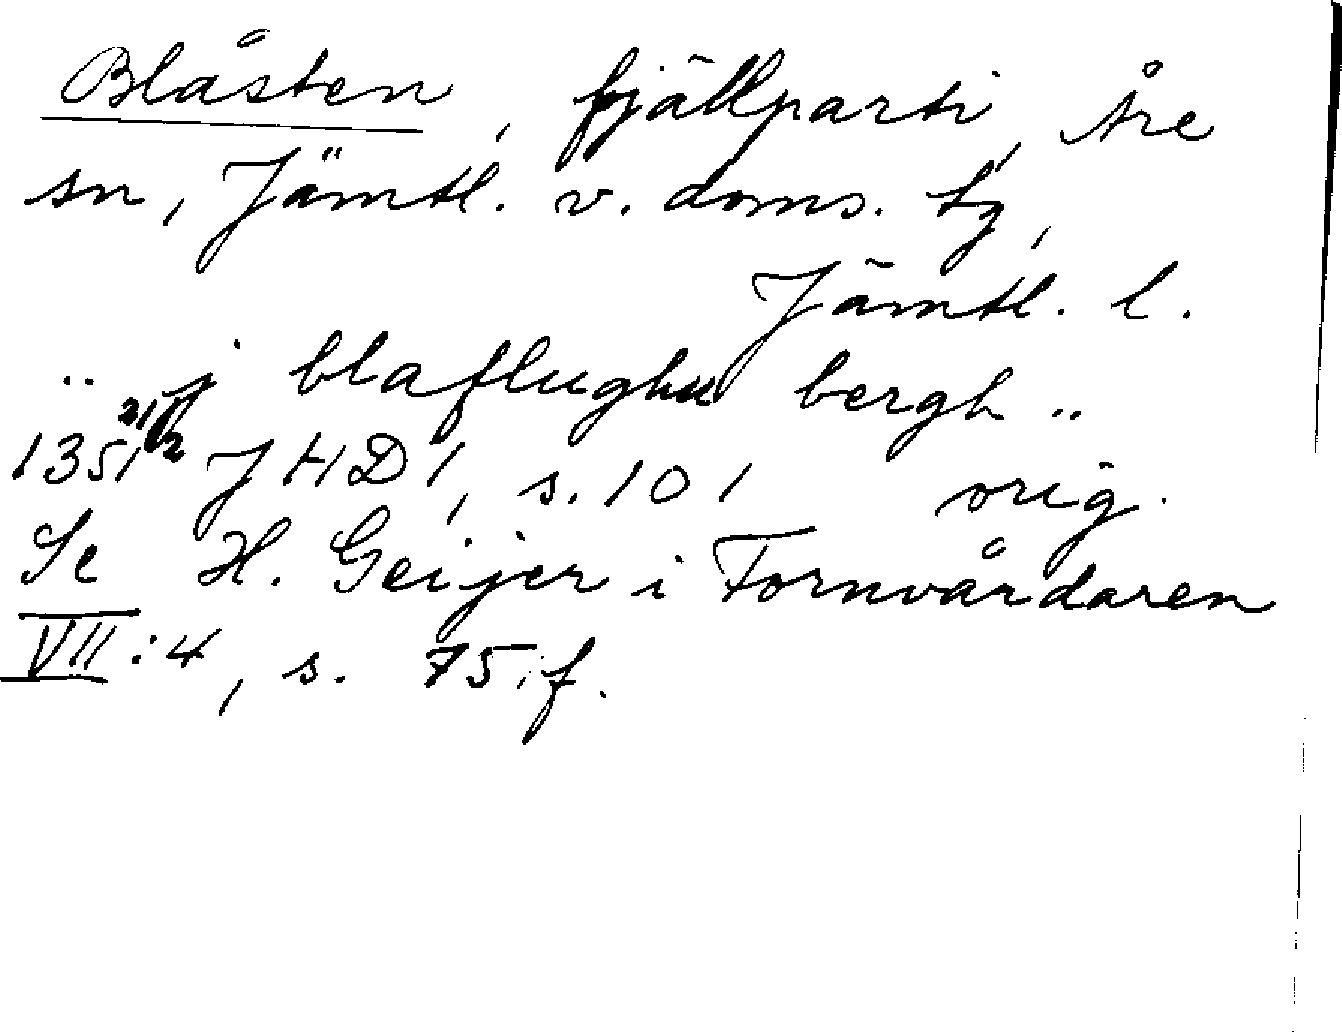 Blåsten, fjällparti, Åre
sn, Jämtl. v. doms. tg,
Jämtl. l.
.. j blaflughu bergh ..
1351 21/2 JHD 1, s. 101 orig.
Se H. Geijer i Fornvårdaren
VII:4, s. 75 f.